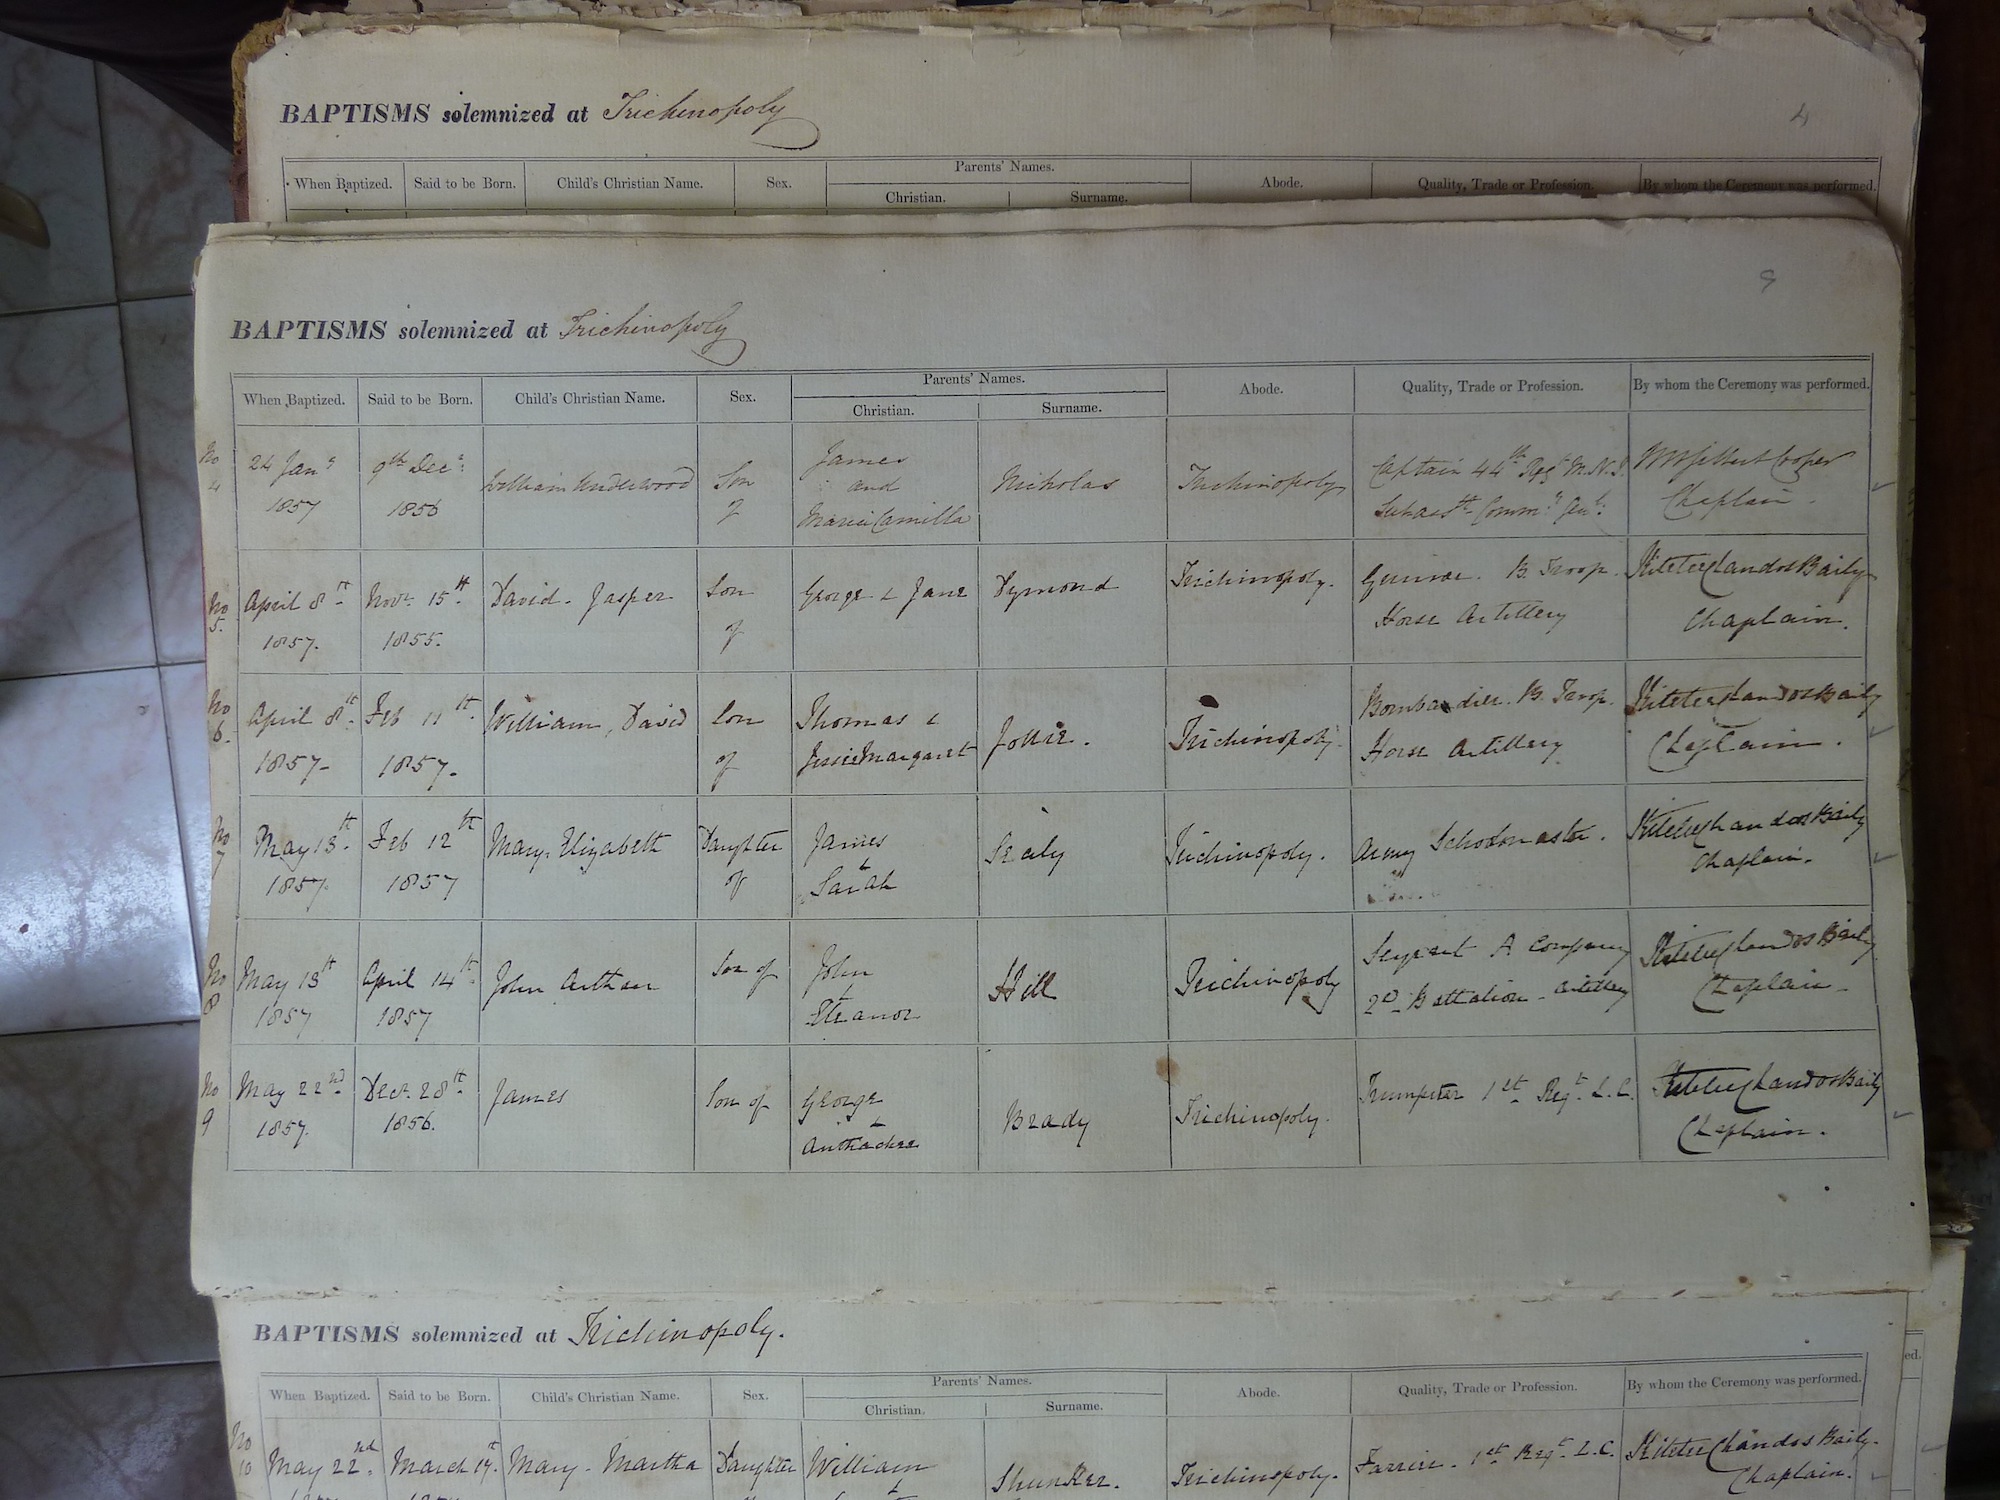 BAPTISMS solemnized at Trichinopoly
4
When Baptized. Said to be Born. Child's Christian Name. Sex. Parents' Names. Abode. Quality, Trade or Profession. By whom the Ceremony was performed.
Christian. Surname.
9
BAPTISMS solemnized at Trichinopoly
When Baptized. Said to be Born. Child's Christian Name. Sex. Parents' Names. Abode. Quality, Trade or Profession. By whom the Ceremony was performed.
Christian. Surname.
No 4 24 Jany 1857 9th Decr 1856 William Underwood Son of James and Maria Camilla Nicholas Trichinopoly Captain 44th Regt M.N.I. Cooper Chaplain
No 5. April 8th 1857. Novr 15th 1855. David. Jasper Son of George & Jane Dymond Trichinopoly. Gunner. B. Troop. Horse Artillery Chandos Baily Chaplain.
No 6. April 8th 1857. Feb 11th 1857. William, David Son of Thomas & Jessie Margaret Trichinopoly. Bombardier. B. Troop. Horse Artillery Chandos Baily Chaplain.
No 7 May 13th 1857. Feb 12th 1857 Mary. Elizabeth Daughter of James & Sarah Sealy Trichinopoly. Army Schoolmaster. Chandos Baily Chaplain.
No 8 May 13th 1857 April 14th 1857 John Arthur Son of John & Eleanor Hill Trichinopoly Serjeant A Company 2D Battalion - Artillery Chandos Baily Chaplain.
No 9 May 22nd 1857. Decr 28th 1856. James Son of George & Brady Trichinopoly. Trumpeter 1st Regt. L.C. Chandos Baily Chaplain.
BAPTISMS solemnized at Trichinopoly.
When Baptized. Said to be Born. Child's Christian Name. Sex. Parents' Names. Abode. Quality, Trade or Profession. By whom the Ceremony was performed.
Christian. Surname.
No 10 May 22nd. March 17th Mary. Martha Daughter William & Trichinopoly. Farrier. 1st Regt L.C. Chandos Baily. Chaplain.